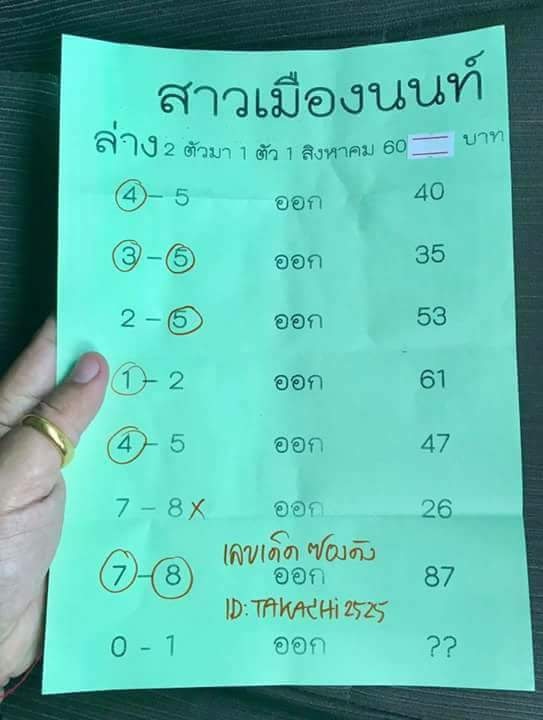 สาวเมืองนนท์
ล่าง 2 ตัวมา 1 ตัว 1 สิงหาคม 60 บาท
4 - 5 ออก 40
3 - 5 ออก 35
2 - 5 ออก 53
1 - 2 ออก 61
4 - 5 ออก 47
7 - 8 x ออก 26
เลขเด็ด ซองดัง
7 - 8 ออก 87
ID: TAKACHi 2525
0 - 1 ออก ??